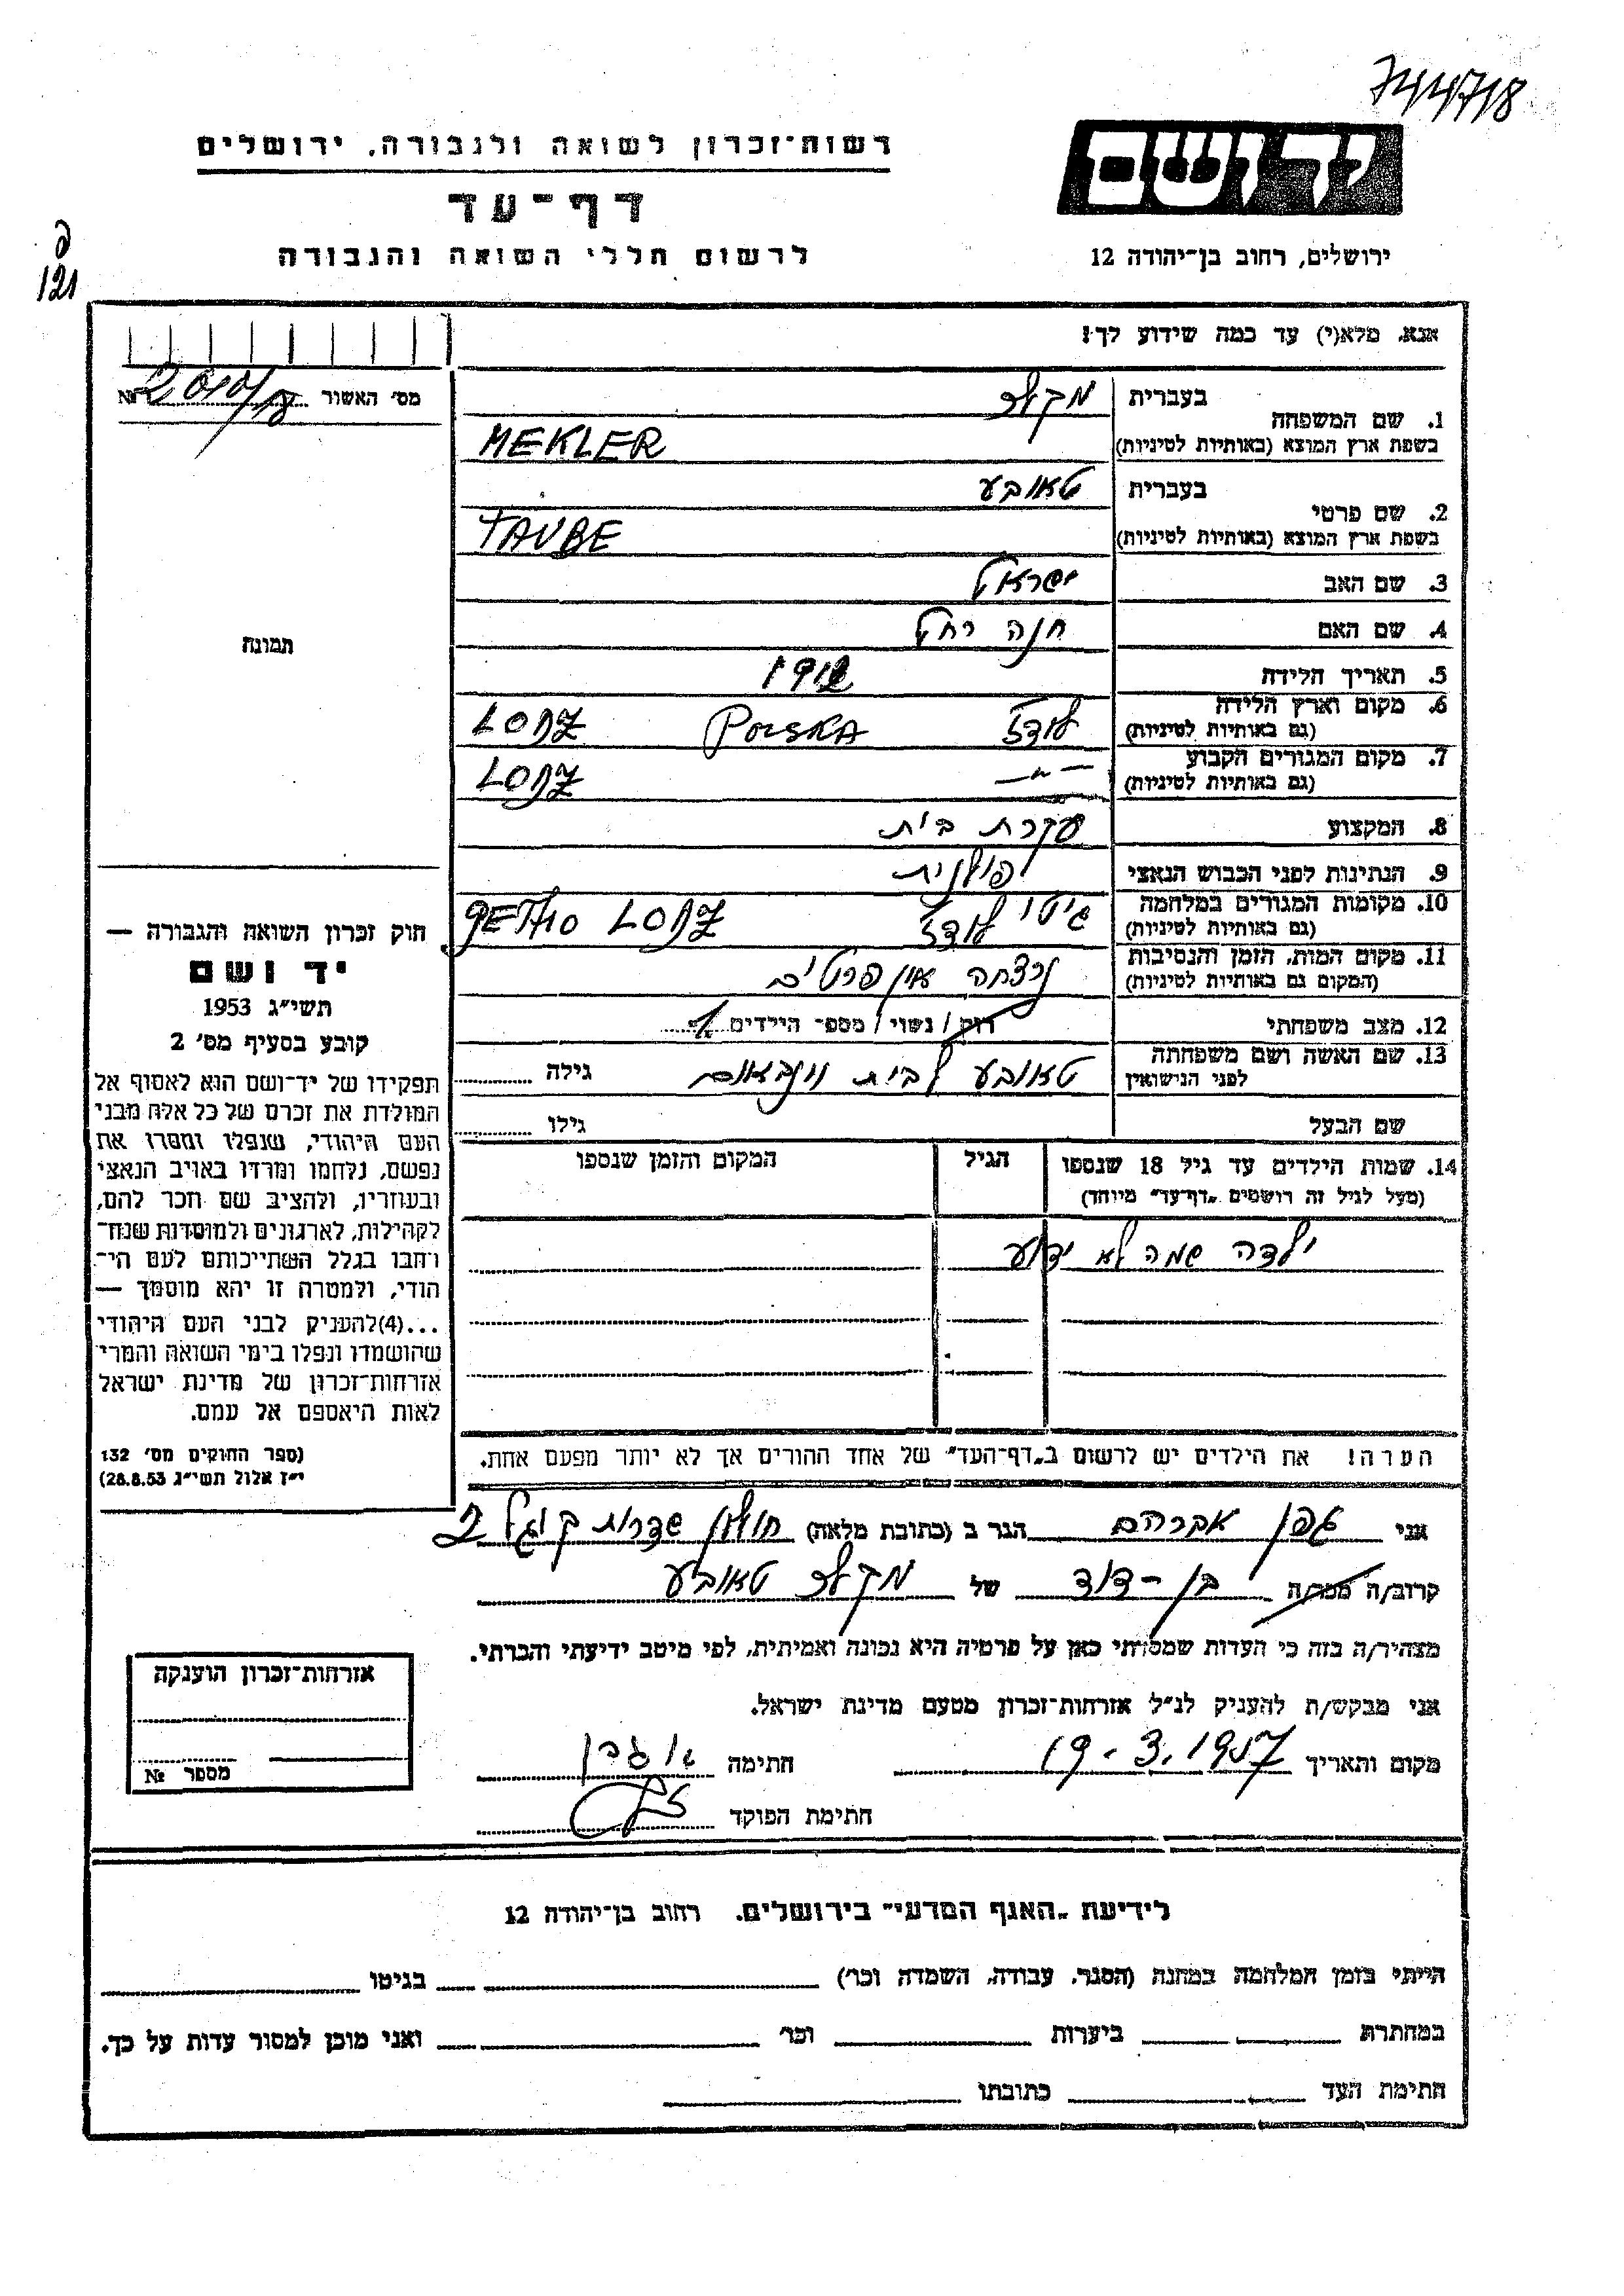 744718
יד ושם
רשות־זכרון לשואה ולגבורה, ירושלים
דף־עד
לרשום חללי השואה והגבורה
ירושלים, רחוב בן־יהודה 12
121
אנא, מלא(י) עד כמה שידוע לך!
מס' האשור №
1. שם המשפחה
בעברית מקלר
בשפת ארץ המוצא (באותיות לטיניות) MEKLER
2. שם פרטי
בעברית טאובע
בשפת ארץ המוצא (באותיות לטיניות) TAUBE
3. שם האב ישראל
4. שם האם חנה רחל
5. תאריך הלידה 1912
6. מקום וארץ הלידה
(גם באותיות לטיניות) לודז POLSKA LODZ
7. מקום המגורים הקבוע
(גם באותיות לטיניות) — " — LODZ
8. המקצוע עקרת בית
9. הנתינות לפני הכבוש הנאצי פולנית
10. מקומות המגורים במלחמה
(גם באותיות לטיניות) גיטו לודז GETTO LODZ
11. מקום המות, הזמן והנסיבות
(המקום גם באותיות לטיניות) נרצחה אין פרטים
12. מצב משפחתי רווק / נשוי / מספ־ הילדים 1
13. שם האשה ושם משפחתה
לפני הנישואין טאובע לבית ויינבאום גילה
שם הבעל גילו
14. שמות הילדים עד גיל 18 שנספו הגיל המקום והזמן שנספו
(מעל לגיל זה רושמים "דף־עד" מיוחד)
ילדה שמה לא ידוע
הערה! את הילדים יש לרשום ב"דף־העד" של אחד ההורים אך לא יותר מפעם אחת.
תמונה
חוק זכרון השואה והגבורה —
יד ושם
תשי"ג 1953
קובע בסעיף מס' 2
תפקידו של יד־ושם הוא לאסוף אל
המולדת את זכרם של כל אלה מבני
העם היהודי, שנפלו ומסרו את
נפשם, נלחמו ומרדו באויב הנאצי
ובעוזריו, ולהציב שם וזכר להם,
לקהילות, לארגונים ולמוסדות שנח־
רחבו בגלל השתייכותם לעם הי־
הודי, ולמטרה זו יהא מוסמך —
...(4)להעניק לבני העם היהודי
שהושמדו ונפלו בימי השואה והמרי
אזרחות־זכרון של מדינת ישראל
לאות היאספם אל עמם.
(ספר החוקים מס' 132
י"ז אלול תשי"ג 28.8.53)
אני גפן אברהם הגר ב (כתובת מלאה) חולון שדרות קוגל 2
קרוב/ה מכר/ה בן-דוד של מקלר טאובע
מצהיר/ה בזה כי העדות שמסרתי כאן על פרטיה היא נכונה ואמיתית, לפי מיטב ידיעתי והכרתי.
אני מבקש/ת להעניק לנ"ל אזרחות־זכרון מטעם מדינת ישראל.
מקום ותאריך 19.3.1957 חתימה א גפן
חתימת הפוקד
אזרחות־זכרון הוענקה
מספר №
לידיעת "האגף המדעי" בירושלים. רחוב בן־יהודה 12
הייתי בזמן המלחמה במחנה (הסגר, עבודה, השמדה וכו') בגיטו
במחתרת ביערות וכו' ואני מוכן למסור עדות על כך.
חתימת העד כתובתו